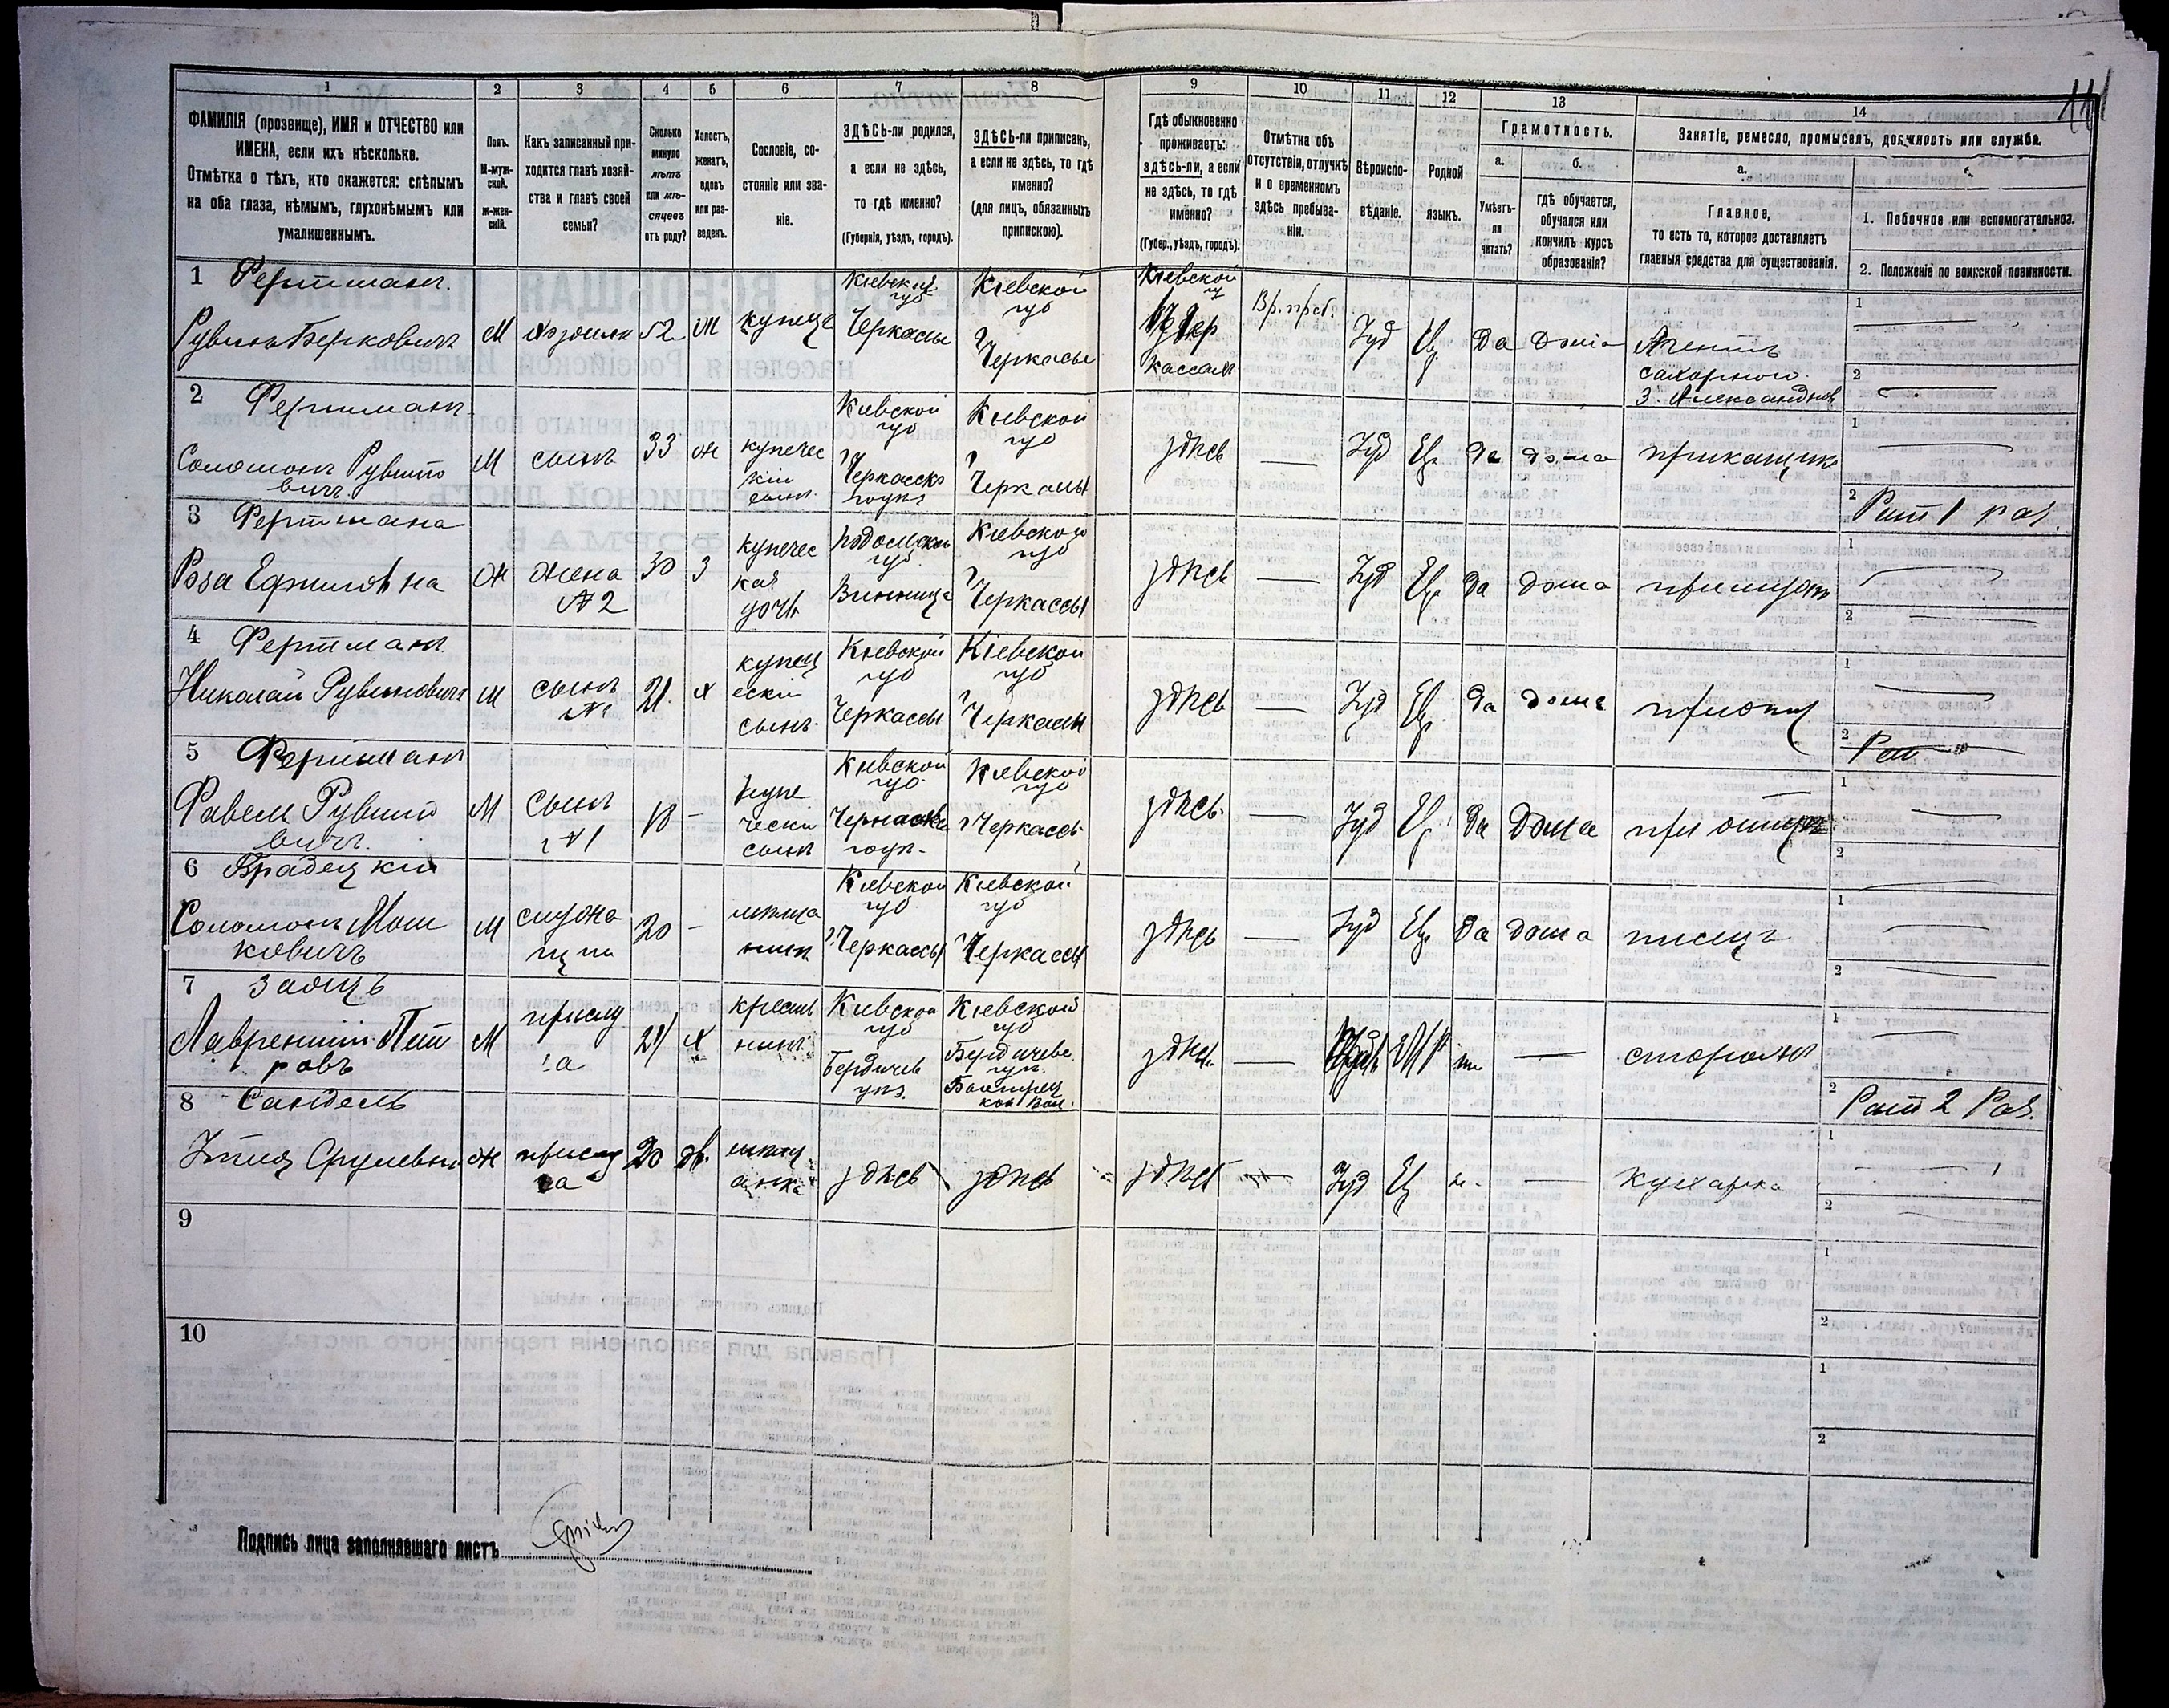 1 2 3 4 5 6 7 8 9 10 11 12 13 14
ФАМИЛІЯ (прозвище), ИМЯ и ОТЧЕСТВО или
ИМЕНА, если ихъ нѣсколько.
Отмѣтка о тѣхъ, кто окажется: слѣпымъ
на оба глаза, нѣмымъ, глухонѣмымъ или
умалишеннымъ.
Полъ.
М-муж-
ской.
ж-жен-
скій.
Какъ записанный при-
ходится главѣ хозяй-
ства и главѣ своей
семьи?
Сколько
минуло
лѣтъ
или мѣ-
сяцевъ
отъ роду?
Холостъ,
женатъ,
вдовъ
или раз-
веденъ.
Сословіе, со-
стояніе или зва-
ніе.
ЗДѢСЬ-ли родился,
а если не здѣсь,
то гдѣ именно?
(Губернія, уѣздъ, городъ).
ЗДѢСЬ-ли приписанъ,
а если не здѣсь, то гдѣ
именно?
(для лицъ, обязанныхъ
припискою).
Гдѣ обыкновенно
проживаетъ:
здѣсь-ли, а если
не здѣсь, то гдѣ
именно?
(Губер., уѣздъ, городъ).
Отмѣтка объ
отсутствіи, отлучкѣ
и о временномъ
здѣсь пребыва-
ніи.
Вѣроиспо-
вѣданіе.
Родной
языкъ.
Грамотность.
а.
Умѣетъ-
ли
читать?
б.
гдѣ обучается,
обучался или
кончилъ курсъ
образованія?
Занятіе, ремесло, промыселъ, должность или служба.
а.
Главное,
то есть то, которое доставляетъ
главныя средства для существованія.
1. Побочное или вспомогательное.
2. Положеніе по воинской повинности.
1 Фертманъ
Рувинъ Берковичъ М хозяинъ 52 Ж купецъ
Кіевской губ Черкассы
Кіевской губ г Черкассы
Кіевской
кассахъ
Вр. преб. Іуд Евр Да дома
Агентъ
сахарного
З. Александров
1
2
2 Фертманъ
Соломонъ Рувино
вичъ М сынъ 33 ж купечес
кій
сынъ
Кіевской губ
Черкасск
Кіевской губ г Черкассы
здѣсь — Іуд Евр да дома прикащикъ
1
2 Рат 1 раз.
3 Фертмана
Роза Ефимовна Ж жена
№ 2 30 З купечес
кая
дочь
Подольской губ
Винница
Кіевской губ г Черкассы
здѣсь — Іуд Евр да дома
1
2
4 Фертманъ
Николай Рувиновичъ М сынъ
№ 1 21 х купеч
ескій
сынъ
Кіевской губ Черкассы
Кіевской губ г Черкассы
здѣсь — Іуд Евр да дома
1
2 Рат
5 Фертманъ
Рувино
вичъ М сынъ
№ 1 18 — купе
чески
сынъ
Кіевской губ
Кіевской губ г Черкассы
здѣсь — Іуд Евр да дома
1
2
6
Соломонъ Мош
ковичъ М служа
щій 20 — мѣща
нинъ
Кіевской губ г. Черкассы
Кіевской губ г Черкассы
здѣсь — Іуд Евр да дома писецъ
1
2
7 Заяцъ
Лаврентій Пет
ровъ М прислу
га х крестья
нинъ
Кіевской губ
Бердичев
уѣз.
Кіевской губ
Бердичевс.
здѣсь — — сторожъ
1
2 Рат 2 Раз.
8 Сандель
Срулевна Ж прислу
га 20 дв. мѣщ
анка
здѣсь здѣсь здѣсь — Іуд Евр — кухарка
1
2
9
1
2
10
1
2
Подпись лица заполнявшаго листъ